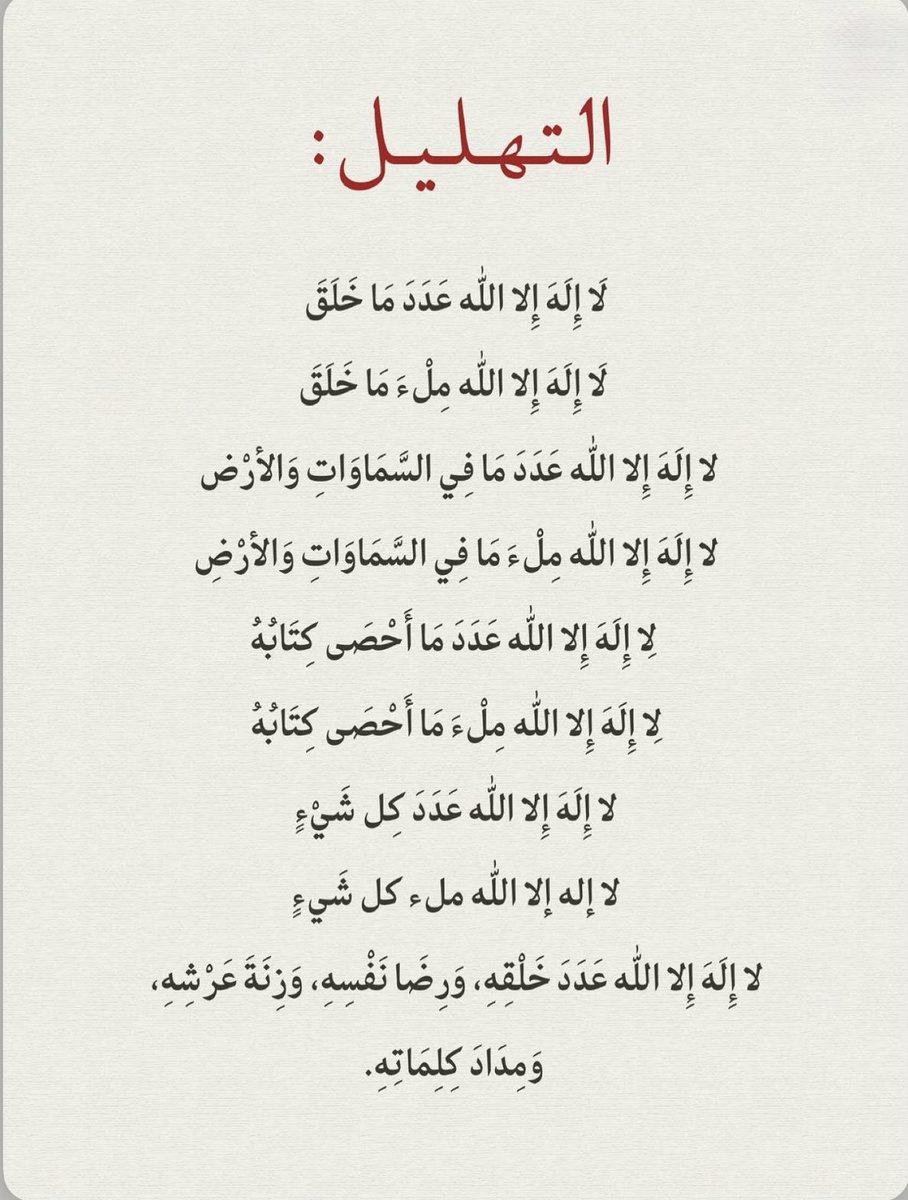 التهليل:
لَا إِلَهَ إِلا اللّٰه عَدَدَ مَا خَلَقَ
لَا إِلَهَ إِلا اللّٰه مِلْءَ مَا خَلَقَ
لا إِلَهَ إِلا اللّٰه عَدَدَ مَا فِي السَّمَاوَاتِ وَالأرْض
لا إِلَهَ إِلا اللّٰه مِلْءَ مَا فِي السَّمَاوَاتِ وَالأرْضِ
لِا إِلَهَ إِلا اللّٰه عَدَدَ مَا أَحْصَى كِتَابُهُ
لِا إِلَهَ إِلا اللّٰه مِلْءَ مَا أَحْصَى كِتَابُهُ
لا إِلَهَ إِلا اللّٰه عَدَدَ كِل شَيْءٍ
لا إله إلا اللّٰه ملء كل شَيءٍ
لا إِلَهَ إِلا اللّٰه عَدَدَ خَلْقِهِ، وَرِضَا نَفْسِهِ، وَزِنَةَ عَرْشِهِ،
وَمِدَادَ كِلِمَاتِهِ.